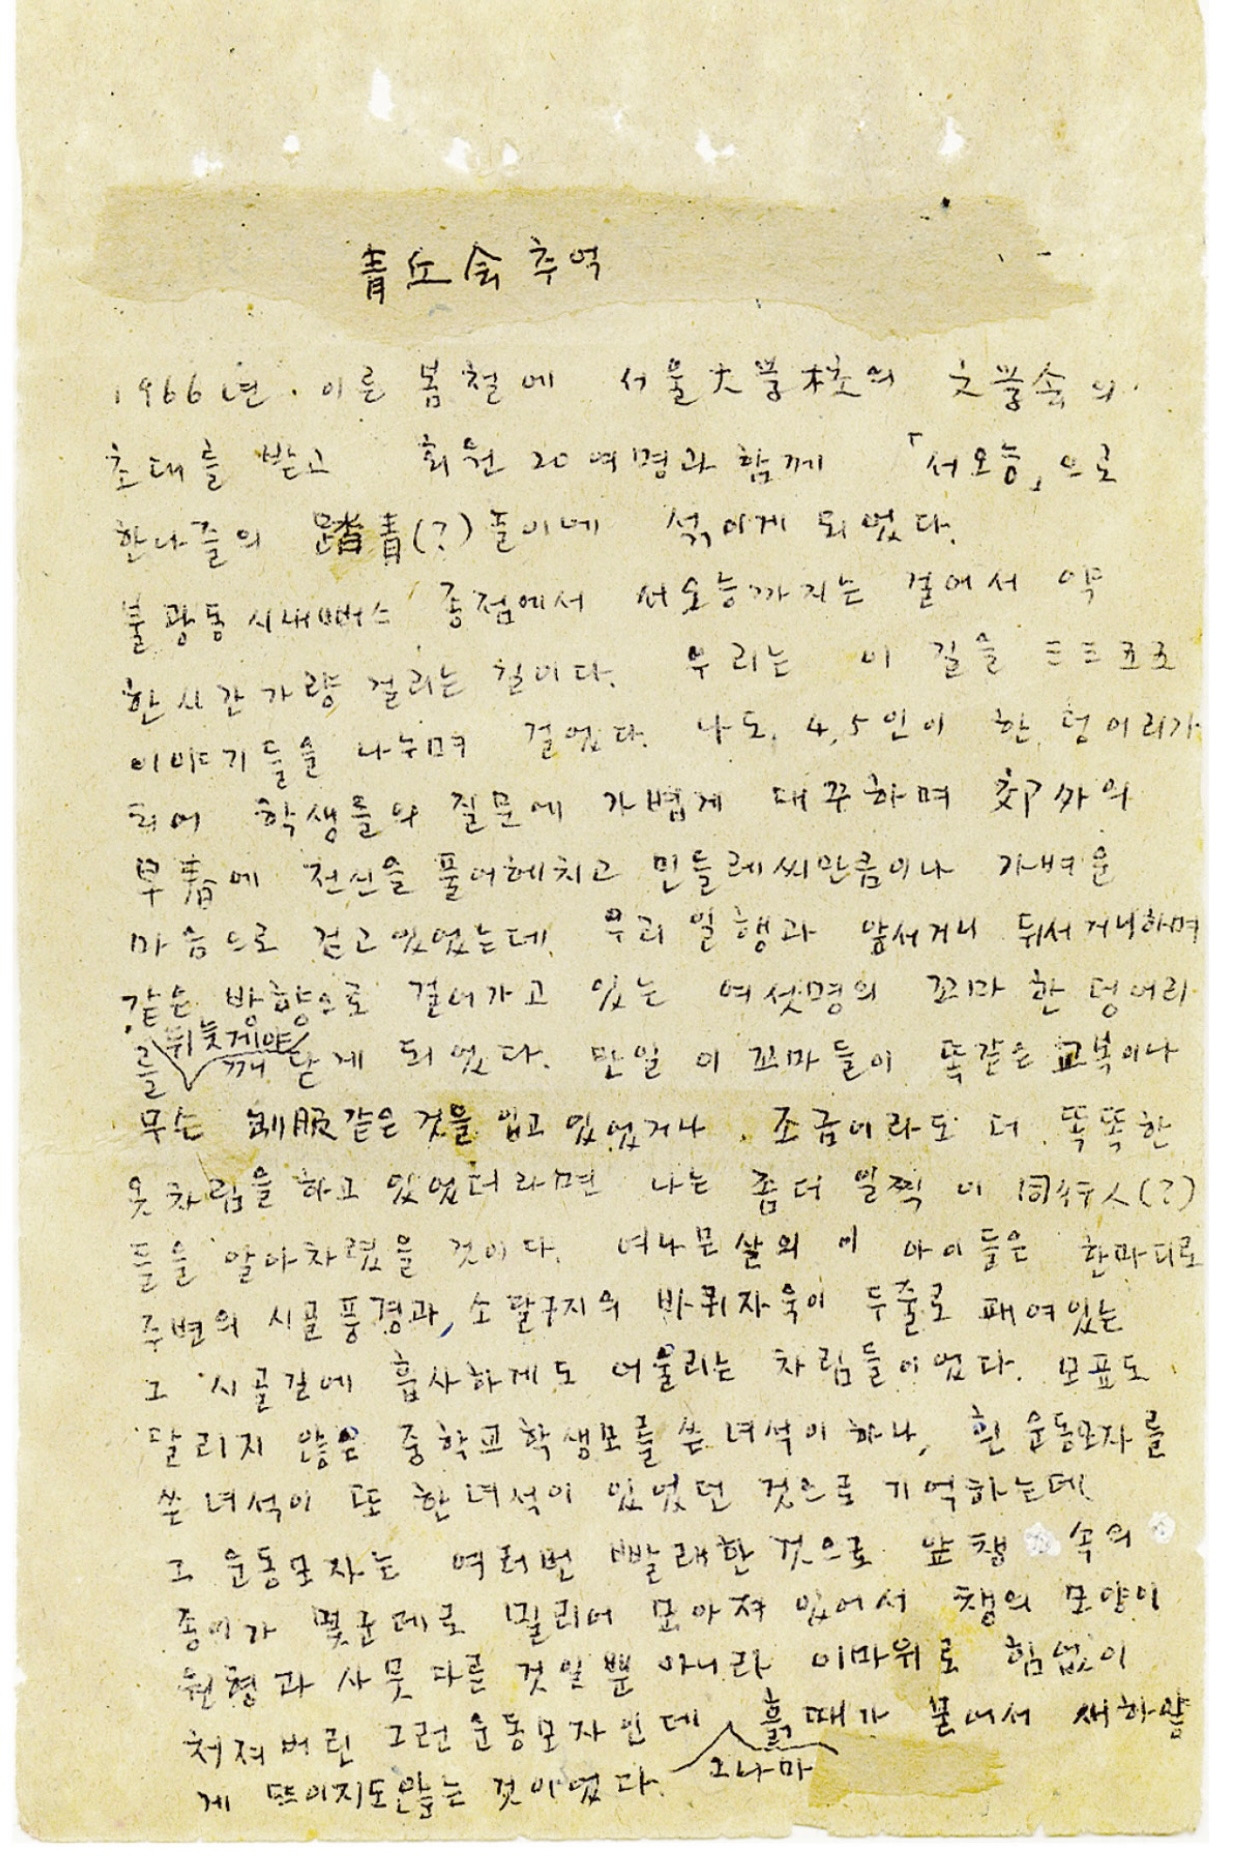 青丘会 추억
1966년. 이른 봄철에 서울大学校의 文学会의
초대를 받고 회원 20여명과 함께 「서오능」으로
한나절의 踏青(?)놀이에 섞이게 되었다.
불광동 시내뻐스 종점에서 서오능까지는 걸어서 약
한시간 가량 걸리는 길이다. 우리는 이 길을 三三五五
이야기들을 나누며 걸었다. 나도, 4,5인이 한 덩어리가
되어 학생들의 질문에 가볍게 대꾸하며 郊外의
早春에 전신을 풀어헤치고 민들레씨만큼이나 가벼운
마음으로 걷고있었는데, 우리 일행과 앞서거니 뒤서거니하며
같은 방향으로 걸어가고 있는 여섯명의 꼬마 한 덩어리
를 뒤늦게야 깨닫게 되었다. 만일 이 꼬마들이 똑같은 교복이나
무슨 制服같은 것을 입고 있었거나, 조금이라도 더 똑똑한
옷차림을 하고 있었더라면 나는 좀더 일찍 이 同行人(?)
들을 알아차렸을 것이다. 여나믄살의 이 아이들은 한마디로
주변의 시골풍경과, 소달구지의 바퀴자욱이 두줄로 패여있는
그 시골길에 흡사하게도 어울리는 차림들이었다. 모표도
달리지 않은 중학교학생모를 쓴 녀석이 하나, 흰 운동모자를
쓴 녀석이 또 한녀석이 있었던 것으로 기억하는데,
그 운동모자는 여러번 빨래한 것으로 앞챙 속의
종이가 몇군데로 밀리어 모아져 있어서 챙의 모양이
원형과 사뭇 다를 것일뿐 아니라 이마위로 힘없이
처져버린 그런 운동모자인데 그나마 흙때가 묻어서 새하얗
게 뜨이지도않는 것이었다.